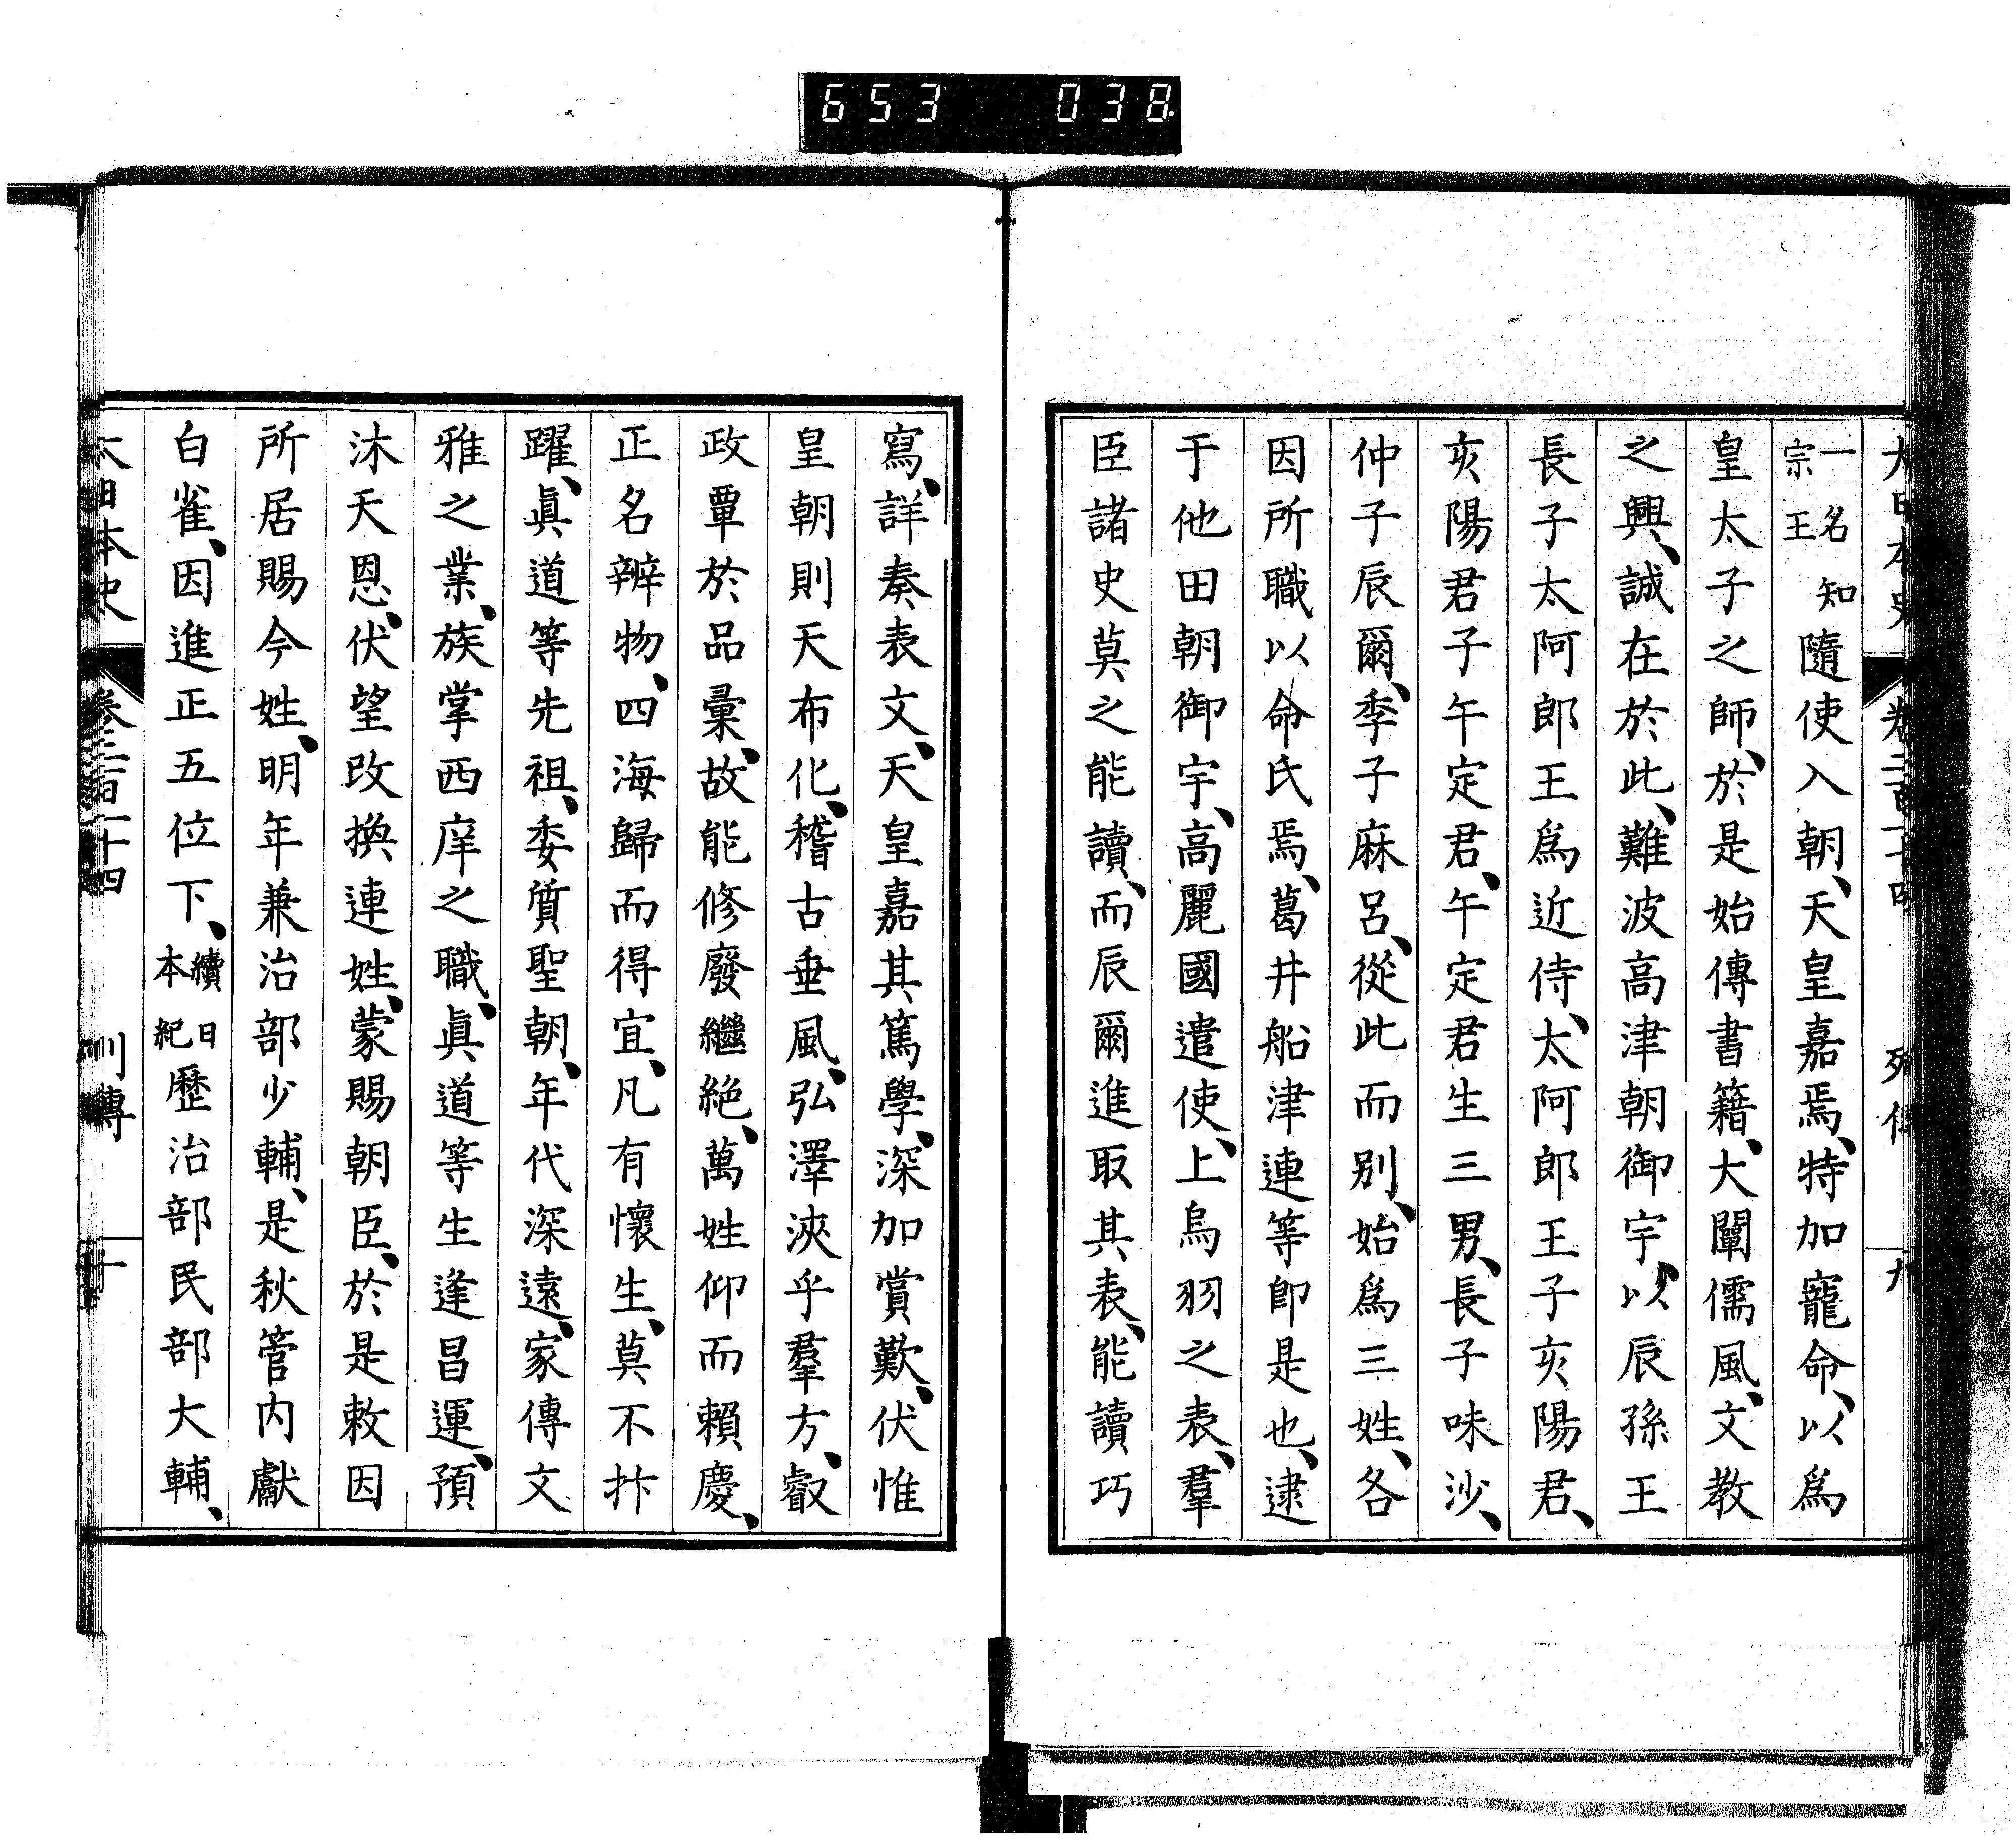 653 038
大日本史 卷二百十四 列傳 九
一名知宗王隨使入朝、天皇嘉焉、特加寵命、以爲
皇太子之師、於是始傳書籍、大闡儒風、文教
之興、誠在於此、難波高津朝御宇、以辰孫王
長子太阿郎王爲近侍、太阿郎王子亥陽君、
亥陽君子午定君、午定君生三男、長子味沙、
仲子辰爾、季子麻呂、從此而別、始爲三姓、各
因所職以命氏焉、葛井船津連等卽是也、逮
于他田朝御宇、高麗國遣使、上烏羽之表、羣
臣諸史莫之能讀、而辰爾進取其表、能讀巧
寫、詳奏表文、天皇嘉其篤學、深加賞歎、伏惟
皇朝則天布化、稽古垂風、弘澤浹乎羣方、叡
政覃於品彙、故能修廢繼絶、萬姓仰而賴慶、
正名辨物、四海歸而得宜、凡有懷生、莫不抃
躍、眞道等先祖、委質聖朝、年代深遠、家傳文
雅之業、族掌西庠之職、眞道等生逢昌運、預
沐天恩、伏望改換連姓、蒙賜朝臣、於是敕因
所居賜今姓、明年兼治部少輔、是秋管内獻
白雀、因進正五位下、續日本紀歷治部民部大輔、
大日本史 卷二百十四 列傳 十